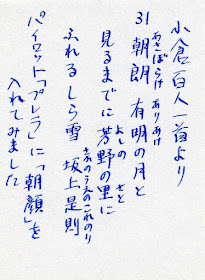 小倉百人一首より
あさぼらけ ありあけ
31 朝朗 有明の月と
よしの さと
見るまでに 芳野の里に
さかのうえのこれのり
ふれるしら雪 坂上是則
パイロット「プレラ」に「朝顔」を
入れてみました